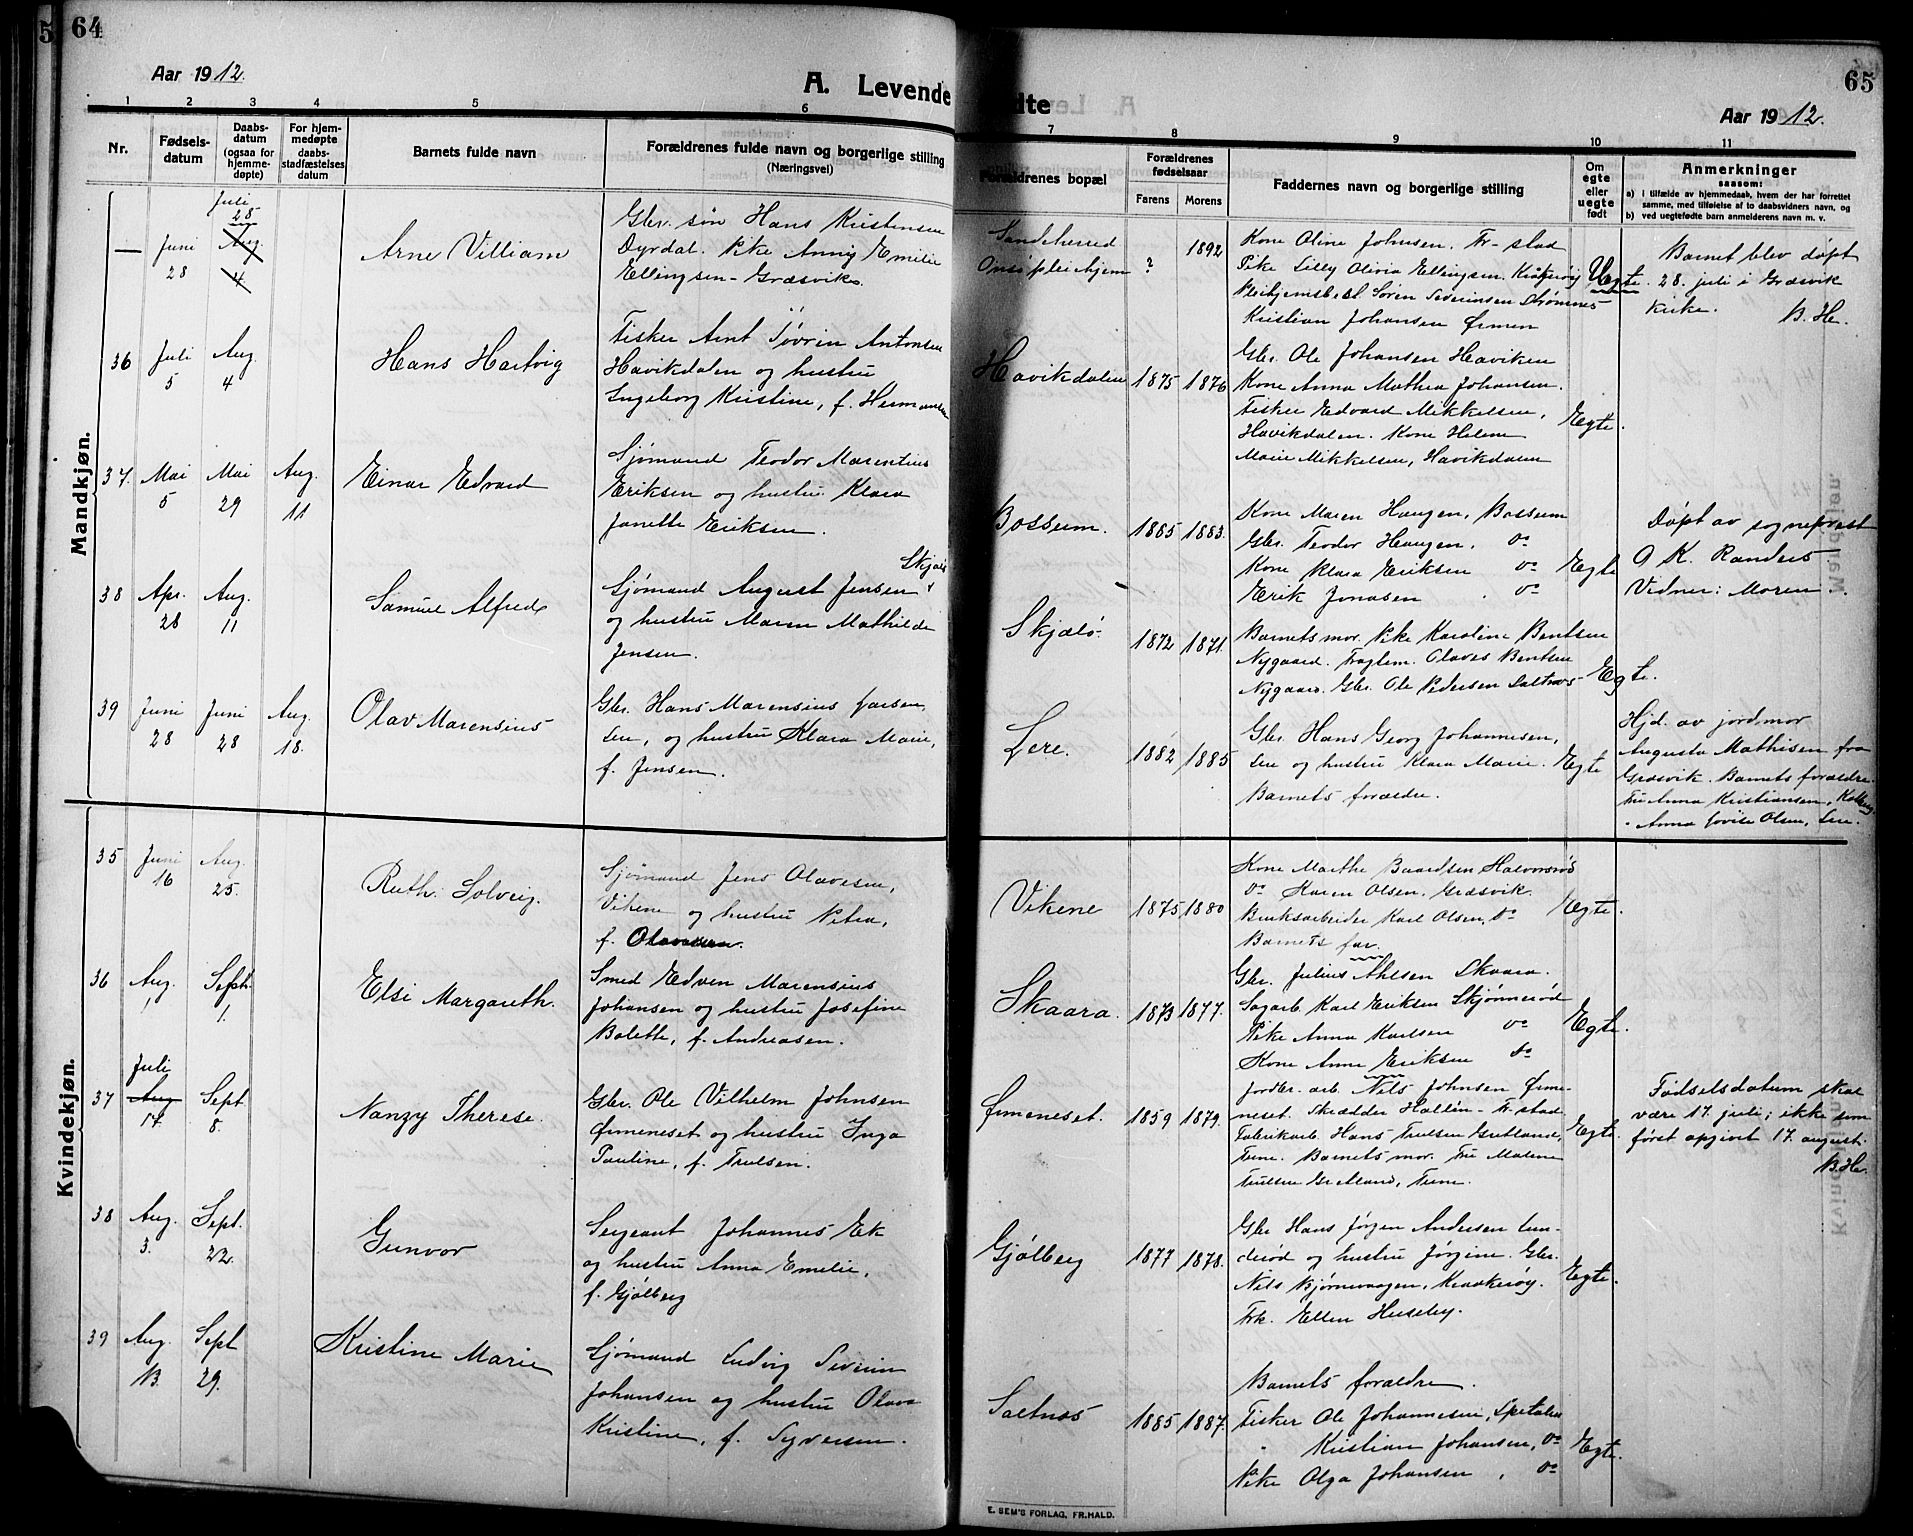 5
64
Aar 1912.
A. Levende
1 2 3 4 5 6
Nr.
Fødsels-
datum
Daabs-
datum
(ogsaa for
hjemme-
døpte)
For hjem-
medøpte
daabs-
stadfæstelses
datum
Barnets fulde navn
Forældrenes fulde navn og borgerlige stilling
(Næringsvei)
Mandkjøn.
—
Juni
28
Juli
28
Aug.
4
Arne Villiam
Gbr. søn Hans Kristensen
Dyrdal. Pike Anny Emilie
Ellingsen - Græsvik.
36
Juli
5
Aug.
4
Hans Hartvig
Fisker Arnt Søvrin Antonsen
Havikdalen og hustru
Ingeborg Kristine, f. Hermansen
37.
Mai
5
Mai
29
Aug.
11
Einar Edvard
Sjømand Teodor Marentius
Eriksen og hustru Klara
Janette Eriksen.
38
Apr.
28
Aug.
11
Samuel Alfred
Skjælø
Sjømand August Jensen
og hustru Maren Mathilde
Jensen.
39
Juni
28
Juni
28
Aug.
18.
Olav Marensius
Gbr. Hans Marensius Larsen,
Lere, og hustru Klara Marie,
f. Jensen.
Kvindekjøn.
35
Juni
16
Aug.
25.
Ruth Solveig.
Sjømand Jens Olavesen,
Vikene og hustru Petra,
f. Olavesen.
36
Aug.
1
Sept.
1.
Elsi Margareth.
Smed Edven Marensius
Johansen og hustru Josefine
Bolette, f. Andreasen.
37
Juli
Aug
17.
Sept
8.
Nanzy Therese.
Gbr. Ole Vilhelm Johnsen
Ørmeneset og hustru Inga
Pauline, f. Trulsen.
38
Aug.
3.
Sept.
22.
Gunvor
Sergeant Johannes Ek
og hustru Anna Emelie,
f. Gjølberg
39
Aug.
13.
Sept
29.
Kristine Marie
Sjømand Ludvig Severin
Johansen og hustru Olava
Kristine, f. Syversen.
65
dte
Aar 1912.
7 8 9 10 11
Forældrenes bopæl
Forældrenes
fødselsaar
Farens Morens
Faddernes navn og borgerlige stilling
Om
egte
eller
uegte
født
Anmerkninger
saasom:
a) i tilfælde av hjemmedaab, hvem der har forrettet
samme, med tilføielse af to daabsvidners navn, og
b) ved uegtefødte barn anmelderens navn m. v.
Sandeherred
Onsø pleiehjem
?
1892
Kone Oline Johnsen. Fr-stad
Pike Lilly Olivia Ellingsen. Kråkerøy
Pleihjemsbest. Søren Severinsen Strømnes
Kristian Johansen Ørmen
Uegte.
Barnet blev døpt
28. juli i Græsvik
kirke. B. He.
Havikdalen
1875 1876
Gbr. Ole Johansen Haviken
Kone Anna Mathea Johansen.
Fisker Edvard Mikkelsen,
Havikdalen. Kone Helene
Marie Mikkelsen, Havikdalen
Egte.
Bossum.
1885 1883.
Kone Maren Haugen, Bossum
Gbr. Teodor Haugen, do
Kone Klara Eriksen do
Erik Jonasen do
Egte
Døpt av sogneprest
O K. Randers
Vidner: Moren
Skjælø
1872 1871.
Barnets mor. Pike Karoline Bentsen
Nygaard. Fragtem. Olaves Bentsen
Nygaard. Gbr. Ole Pedersen Saltnes
Egte.
Lere.
1882 1885
Gbr. Hans Georg Johannesen,
Lere og hustru Klara Marie.
Barnets forældre.
Egte
Hjd. av jordmor
Augusta Mathisen fra
Græsvik. Barnets forældre.
Fru Anna Kristiansen,
" Anna Lovise Olsen, Lere.
Vikene
1875 1880
Kone Marthe Baardsen Halvorsrød
do Karen Olsen, Græsvik.
Bruksarbeider Karl Olsen, do
Barnets far.
Egte.
Skaara.
1873 1877.
Gbr. Julius Ahlsen Skaara.
Sagarb. Karl Eriksen Skjønnerød
Pike Anna Karlsen do
Kone Anne Eriksen do
Egte.
Ørmeneset.
1859 1879.
Jordbr. arb. Nels Johnsen Ørme-
neset. Skrædder Hallén - Fr.stad
Fabrikarb. Hans Trulsen Grutland,
Tune. Barnets mor. Fru Malene
Trulsen Grutland, Tune.
Egte.
Fødselsdatum skal
være 17. juli; ikke som
først opgivet 17. august.
B. He.
Gjølberg
1877 1878.
Gbr Hans Jørgen Andersen Lun-
derød og hustru Jørgine. Gbr.
Nils Bjørnevaagen, Kraakerøy.
Frk. Ellen Huseby.
Egte.
Saltnes
1885 1887.
Barnets forældre.
Fisker Ole Johannesen, Spetalen
" Kristian Johansen, do
Pike Olga Johansen, do
Egte.
E. SEM'S FORLAG, FR.HALD.